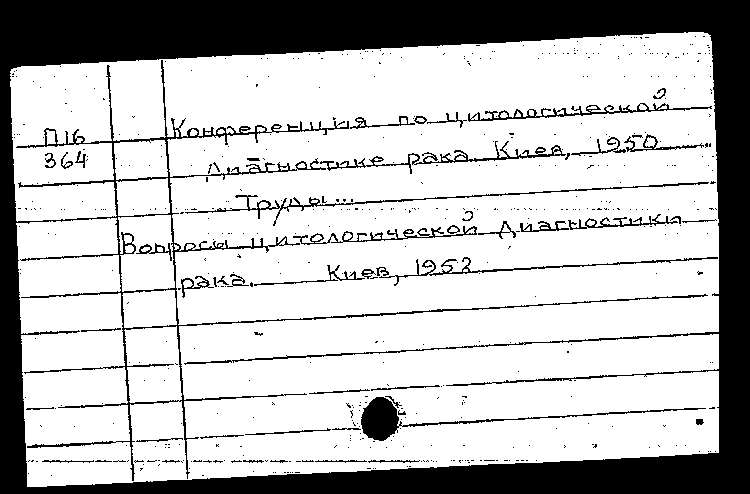 П16
364
Конференция по цитологической
диагностике рака. Киев, 1950
Труды...
Вопросы цитологической диагностики
рака. Киев, 1952